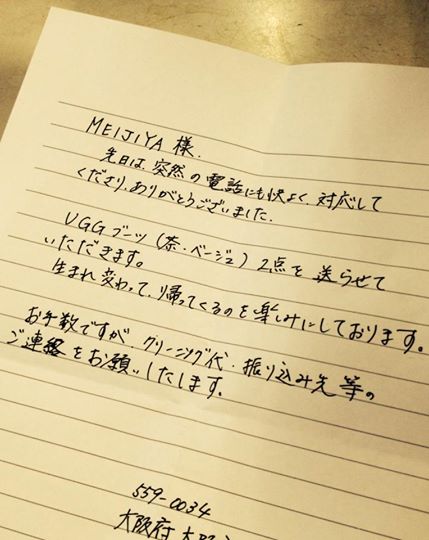 MEIJIYA 様.
先日は、突然の電話にも快よく、対応して
くださり、ありがとうございました.
UGGブーツ(茶・ベージュ)2点を送らせて
いただきます。
生まれ変わって、帰ってくるのを楽しみにしております。
お手数ですが、クリーニング代・振り込み先等の
ご連絡をお願いしたします.
559-0034
大阪府 大阪